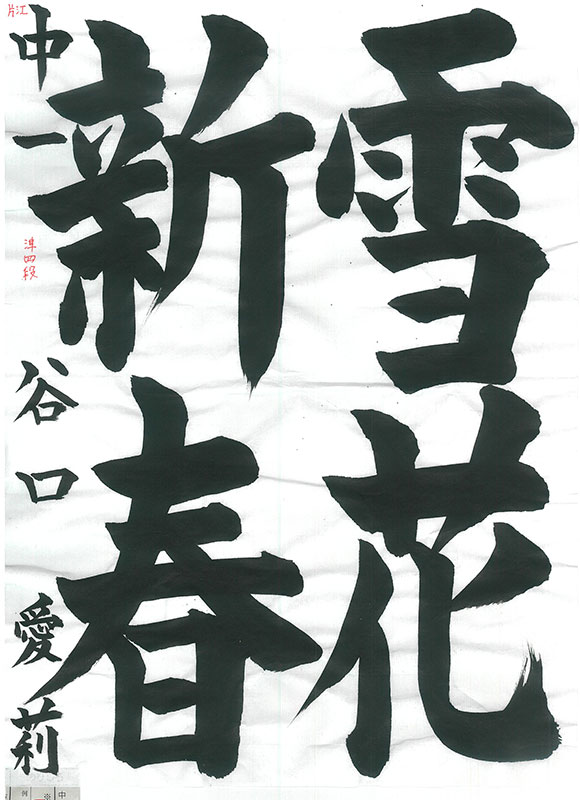 雪花
新春
片江
中一 谷口 愛莉
準四段